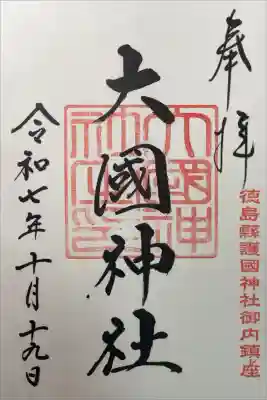 奉拝
徳島縣護國神社御内鎮座
大國神社
大國神社印
令和七年十月十九日